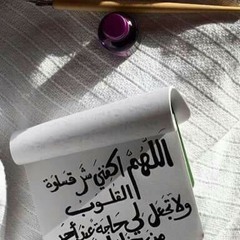 اللهُمَّ اكفني شر قساوة
القلوب
ولا تجعل لي حاجة عند أحد